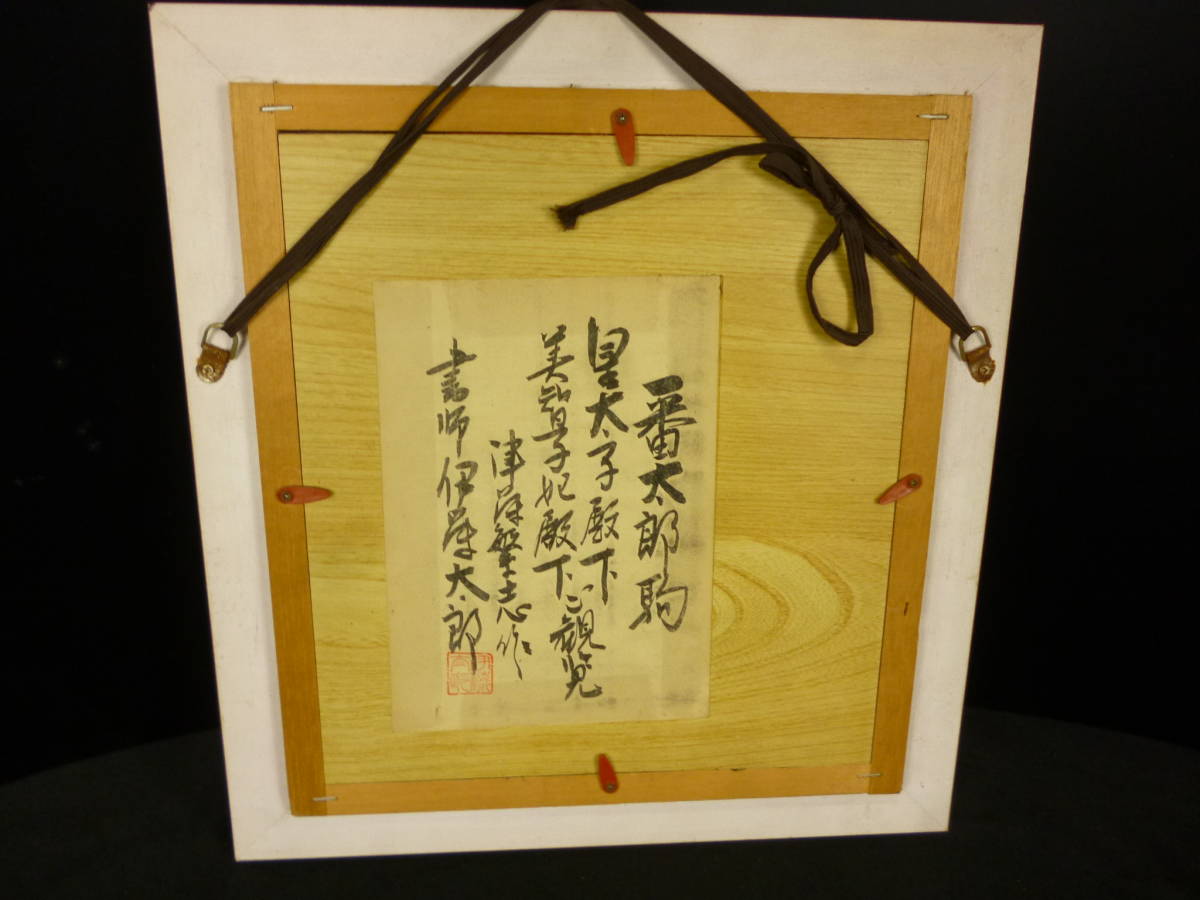 一番太郎駒
皇太子殿下
美智子妃殿下ご観覧
津 志作
書師伊藤太郎